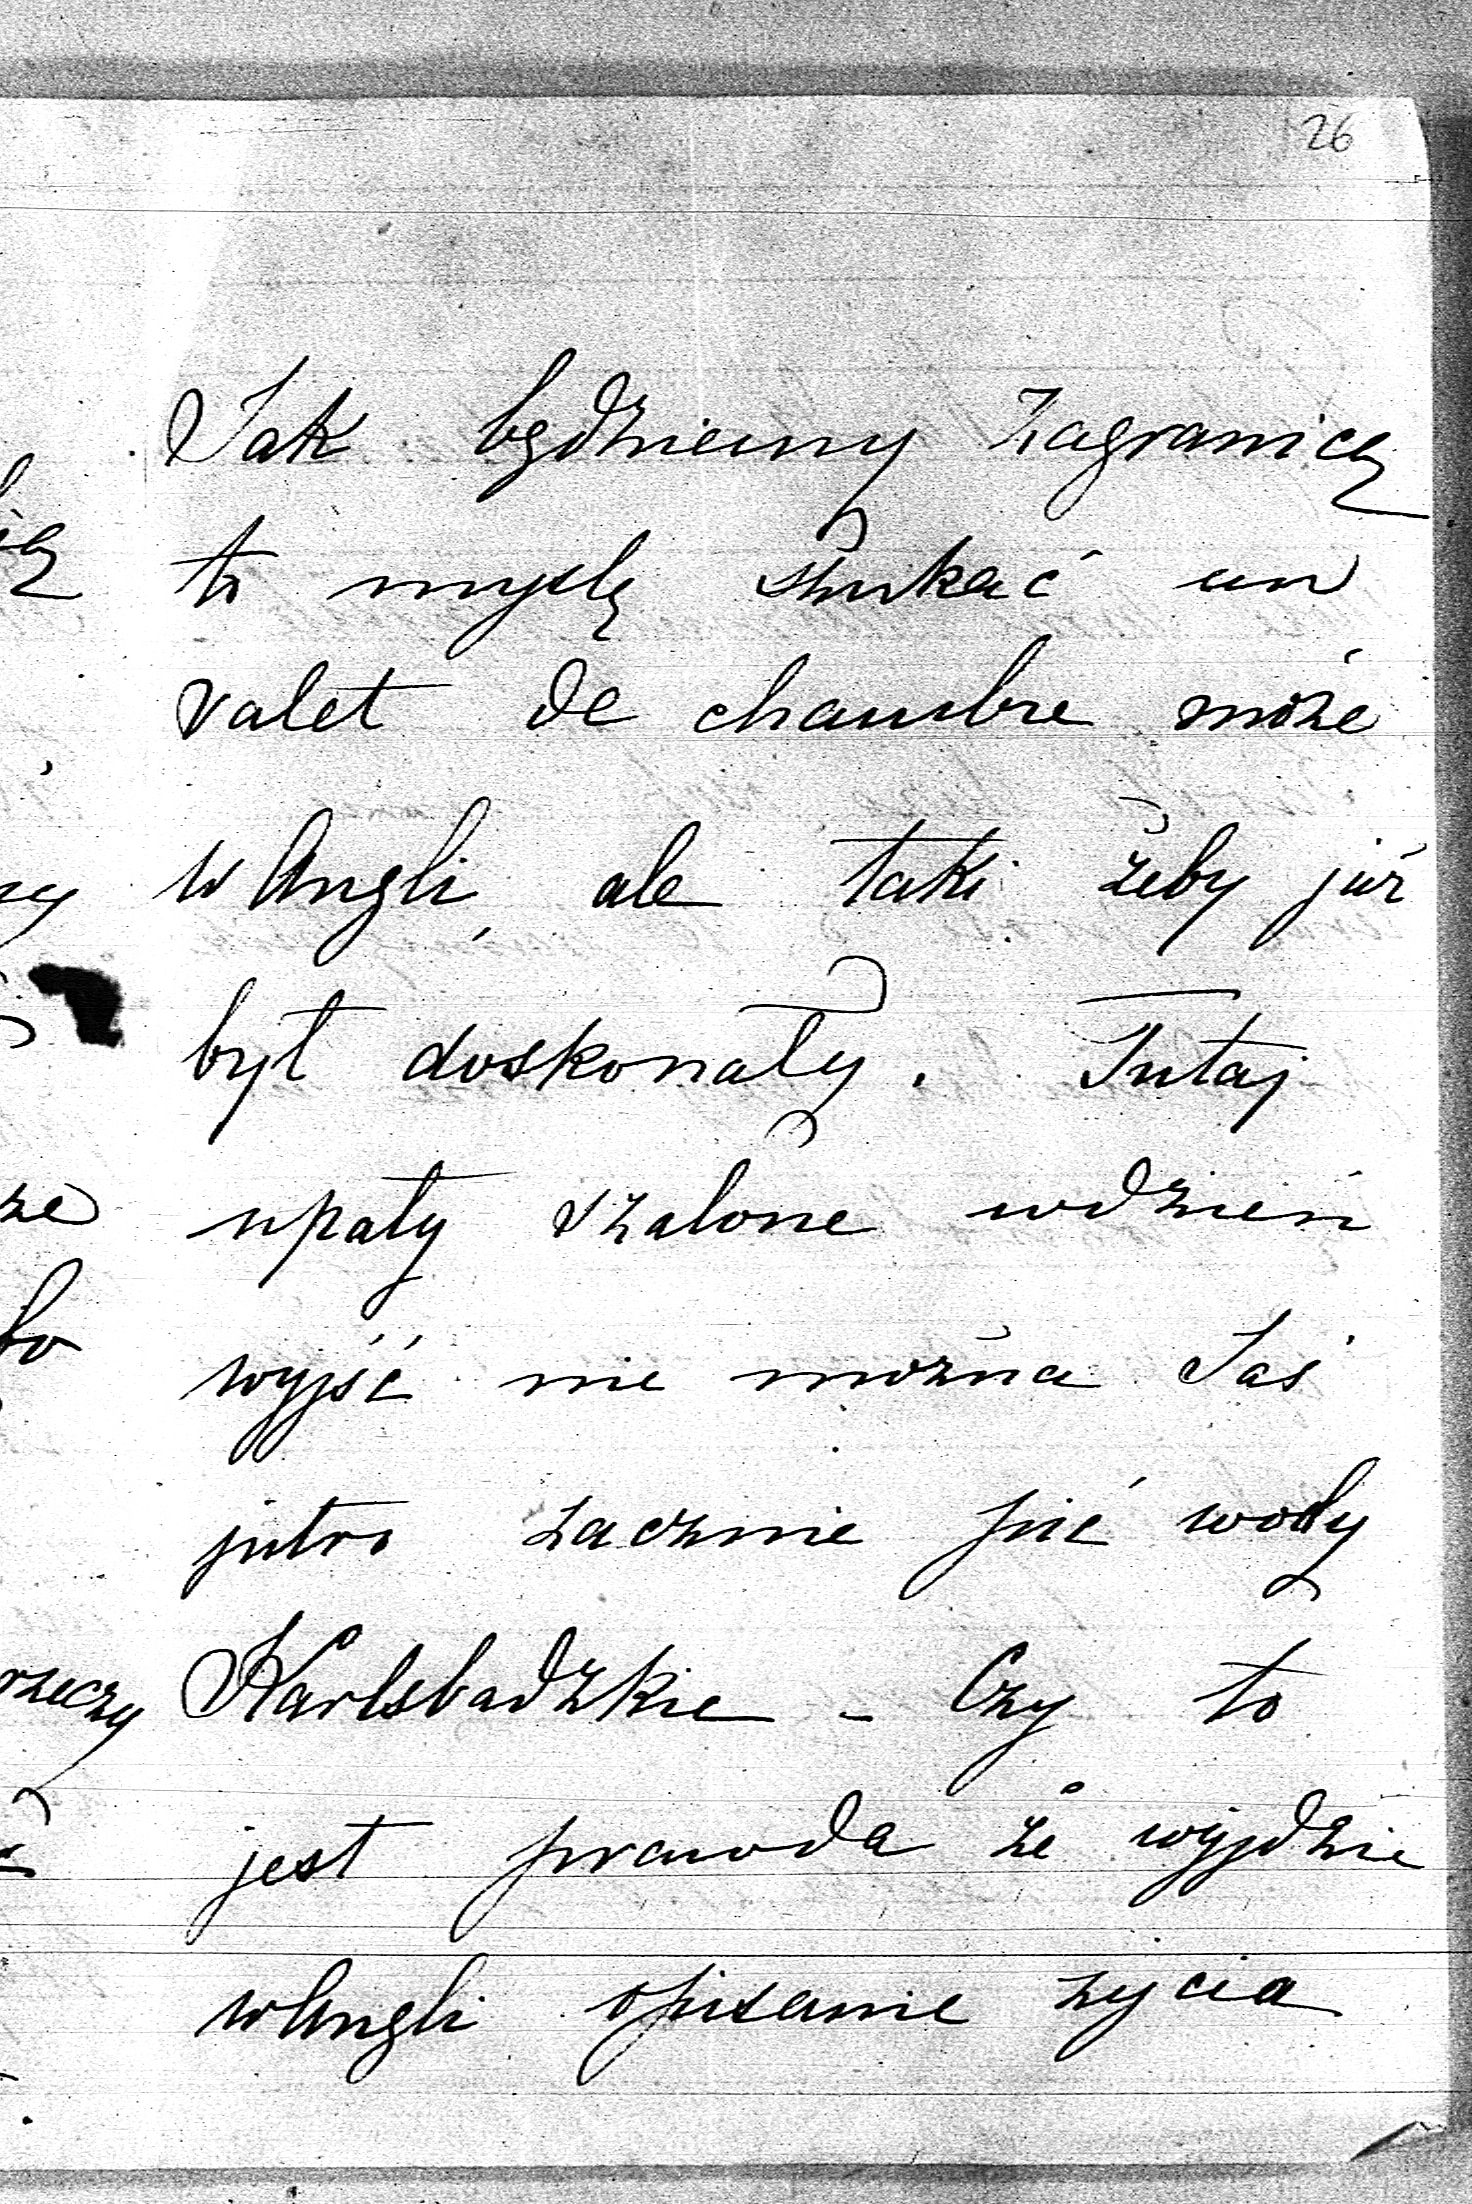 26
Jak będziemy zagranicą
to myslę szukać un
valet de chambre może
w Angli, ale taki żeby już
był doskonały. Tutaj
upały szalone wdzień
wyjść nie można Jaś
jutro zacznie pić wody
Karlsbadzkie - Czy to
jest prawda że wyjdzie
w Angli opisanie zycia
rzeczy